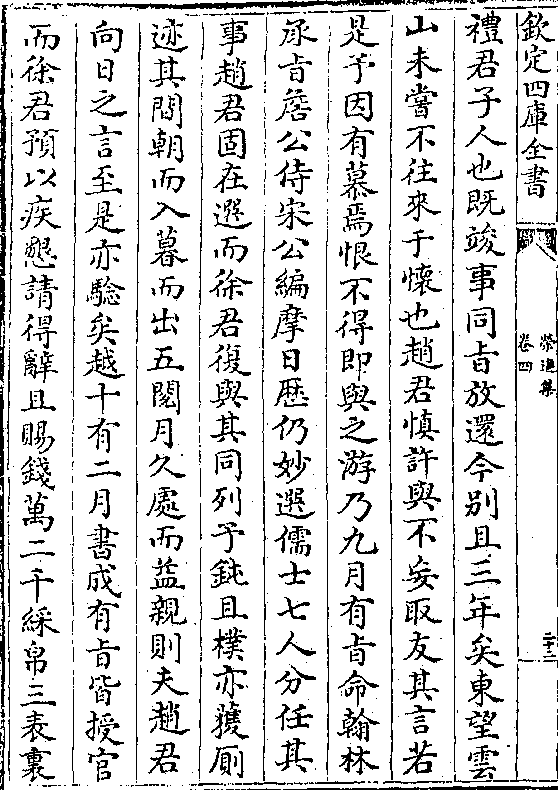 欽定四庫全書
榮進集
卷四
二十三
禮君子人也既竣事同㫖放還今别且三年矣東望雲
山未嘗不往來于懷也趙君慎許與不妄取友其言若
是予因有慕焉恨不得即與之游乃九月有㫖命翰林
承㫖詹公侍宋公編摩日歴仍妙選儒士七人分任其
事趙君固在選而徐君復與其同列予鈍且樸亦獲厠
迹其間朝而入暮而出五閲月久處而益親則夫趙君
向日之言至是亦驗矣越十有二月書成有㫖皆授官
而徐君預以疾懇請得辭且賜錢萬二千綵帛三表裏